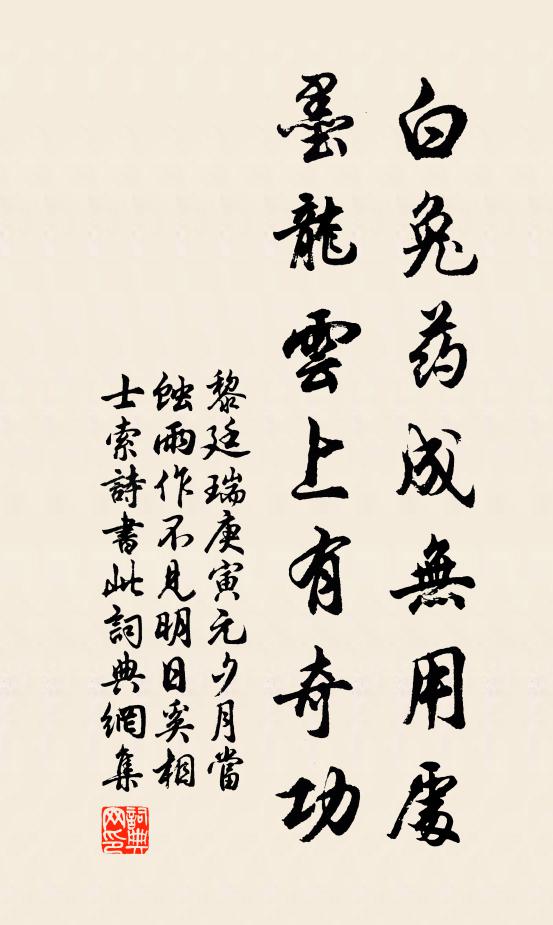 白兔药成無用處
墨龍雲上有奇功
黎廷瑞庚寅元夕月當
蝕雨作不見明日奚相
士索詩書此詞典網集
詞典网印